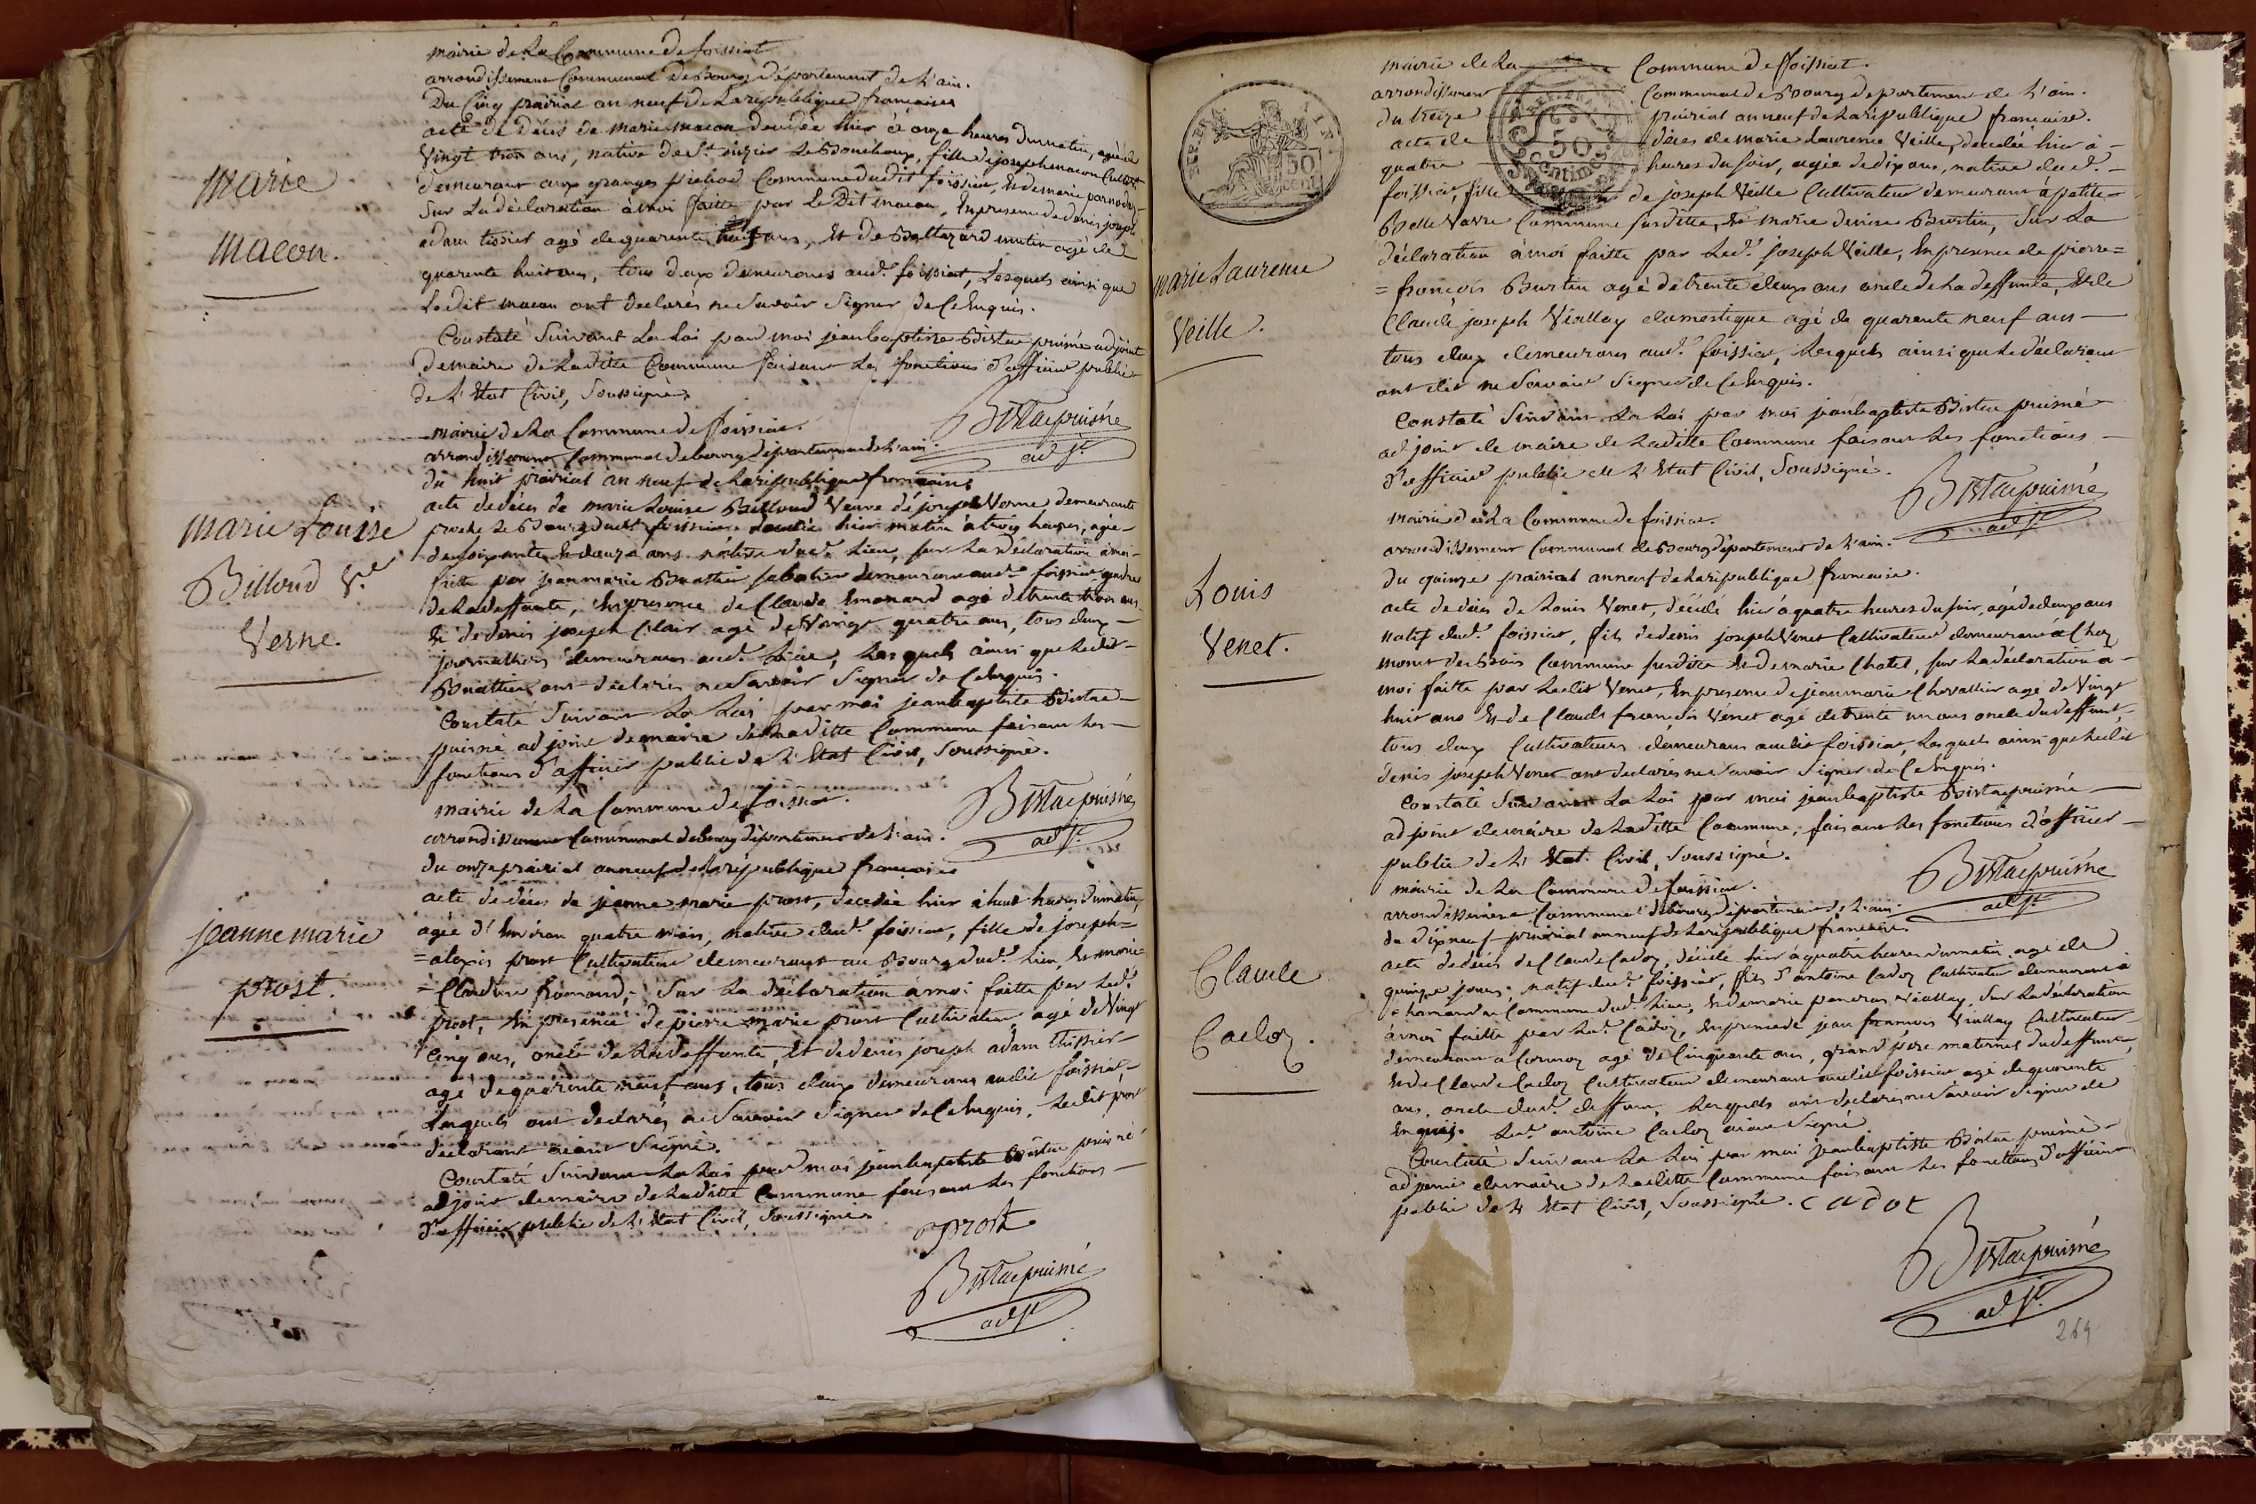 mairie de La Commune de foissiat
arrondissement Communal de Bourg département de L'ain.
Du Cinq prairial an neuf de La republique francaise
acte de décés de marie macon decedée hier à onze heures du matin, agée de
Vingt trois ans, native de St. nizier Le Bouchoux, fille de joseph macon Cultivr.
demeurant aux granges Commune dudit foissiat, et de marie
Sur La déclaration à moi faitte par Le Dit macon, En presence de denis joseph
adam tissier agé de quarante huit ans, Et de Baltazard mutin agé de
quarante huit ans, tous deux demeurans aud. foissiat, Lesquels ainsi que
Ledit macon ont declarés ne Savoir Signer de Ce Enquis.
Constaté Suivant La Loi par moi jean baptiste Bistac puisné adjoint
de maire de Laditte Commune faisant Les fonctions d'officier public
de L'Etat Civil, Soussigné.
Bistac puisné
adjt.
marie
macon.
mairie de La Commune de foissiat.
arrondissement Communal de bourg département de L'ain
du huit prairial an neuf de La republique francaise
acte de décés de marie Louise Billoud Veuve de joseph Verne demeurante
proche Le Bourg dudt. foissiat decedée hier matin à trois heures, agée
de soixante et douze ans native dud. Lieu, sur La déclaration à moi
faitte par jean marie Buathier sabotier demeurant aud. foissiat gendre
de La deffunte, En presence de Claude Emonard agé de trente trois ans
Et de denis joseph Clair agé de Vingt quatre ans, tous deux
journalliers demeurans aud. Lieu, Lesquels ainsi que Ledit
Buathier ont declarés ne Savoir Signer de Ce Enquis.
Constaté Suivant La Loi par moi jean baptiste Bistac
puisné adjoint de maire de Laditte Commune faisant Les
fonctions d'officier public de L'Etat Civil, Soussigné.
Bistac puisné
adjt.
marie Louise
Billoud Ve.
Verne.
mairie de La Commune de foissiat.
arrondissement Communal de bourg département de L'ain.
du onze prairial an neuf de La république francaise
acte de décés de jeanne marie prost, decedée hier à huit heures du matin,
agée d'Environ quatre mois, native dud. foissiat, fille de joseph=
=alexis prost Cultivateur demeurant au Bourg dud. Lieu, Et marie
=Claudine Romand; Sur La déclaration à moi faitte par Led.
prost, En presence de pierre marie prost Cultivateur agé de Vingt
Cinq ans, oncle de La deffunte, Et de denis joseph adam thissier
agé de quarante neuf ans, tous deux demeurans audit foissiat,
Lesquels ont declarés ne Savoir Signer de Ce Enquis, Ledit prost
déclarant aiant Signé.
Constaté Suivant La Loi par moi jean baptiste Bistac puisné
adjoint de maire de Laditte Commune faisant Les fonctions
d'officier public de L'Etat Civil, Soussigné.
prost
Bistac puisné
adjt.
jeanne marie
prost.
mairie de La Commune de foissiat.
arrondissement Communal de Bourg departement de L'ain.
du treize prairial an neuf de La république francaise.
acte de déces de marie Laurence Veille, decedée hier à
quatre heures du soir, agée de dix ans, native dud.
foissiat, fille de joseph Veille Cultivateur demeurant à petite
Belle Vavre Commune susditte, Et marie denise Burtin, Sur La
déclaration à moi faitte par Led. joseph Veille, En presence de pierre=
=françois Burtin agé de trente deux ans oncle de La deffunte, Et de
Claude joseph Viallay domestique agé de quarante neuf ans
tous deux demeurans aud. foissiat, Lesquels ainsi que Le déclarant
ont dit ne Savoir Signer de Ce Enquis.
Constaté Suivant La Loi par moi jean baptiste Bistac puisné
adjoint de maire de Laditte Commune faisant Les fonctions
d'officier public de L'Etat Civil, Soussigné.
Bistac puisné
adjt.
50
cent
50
Centimes
marie Laurence
Veille.
mairie de La Commune de foissiat.
arrondissement Communal de Bourg département de L'ain.
du quinze prairial an neuf de La république francaise.
acte de déces de Louis Venet, décédé hier à quatre heures du soir, agé de deux ans
natif dud. foissiat, fils de denis joseph Venet Cultivateur demeurant à Chez
monet des Bois Commune susditte Et de marie Chatel, sur La déclaration à
moi faitte par Ledit Venet, En presence de jean marie Chevallier agé de Vingt
huit ans Et de Claude francois Vénet agé de trente un ans oncle du deffunt,
tous deux Cultivateurs demeurans audit foissiat, Lesquels ainsi que Ledit
denis joseph Venet ont declarés ne Savoir Signer de Ce Enquis.
Constaté Suivant La Loi par moi jean baptiste Bistac puisné
adjoint de maire de Laditte Commune, faisant Les fonctions d'officier
public de L'Etat Civil, Soussigné.
Bistac puisné
adjt.
Louis
Venet.
mairie de La Commune de foissiat.
arrondissement Communal de bourg département de L'ain.
du dix neuf prairial an neuf de La république francaise.
acte de décés de Claude Cadoz, décédé hier à quatre heures du matin, agé de
quinze jours, natif dud. foissiat, fils d'antoine Cadoz Cultivateur demeurant à
Chamandre Commune dud. Lieu, Et de marie pancras Viallay, Sur La déclaration
à moi faitte par Led. Cadoz, En presence de jean francois Viallay Cultivateur
demeurant à Cormoz agé de Cinquante ans, grand pere maternel du deffunt,
Et de Claude Cadoz Cultivateur demeurant audit foissiat agé de quarante
ans, oncle dud. deffunt, Lesquels ont declarés ne Savoir Signer de
Enquis. Led. antoine Cadoz aiant Signé.
Constaté Suivant La Loi par moi jean baptiste Bistac puisné
adjoint de maire de Laditte Commune faisant Les fonctions d'officier
public de L'Etat Civil, Soussigné. cadot
Bistac puisné
adjt.
Claude
Cadoz.
264